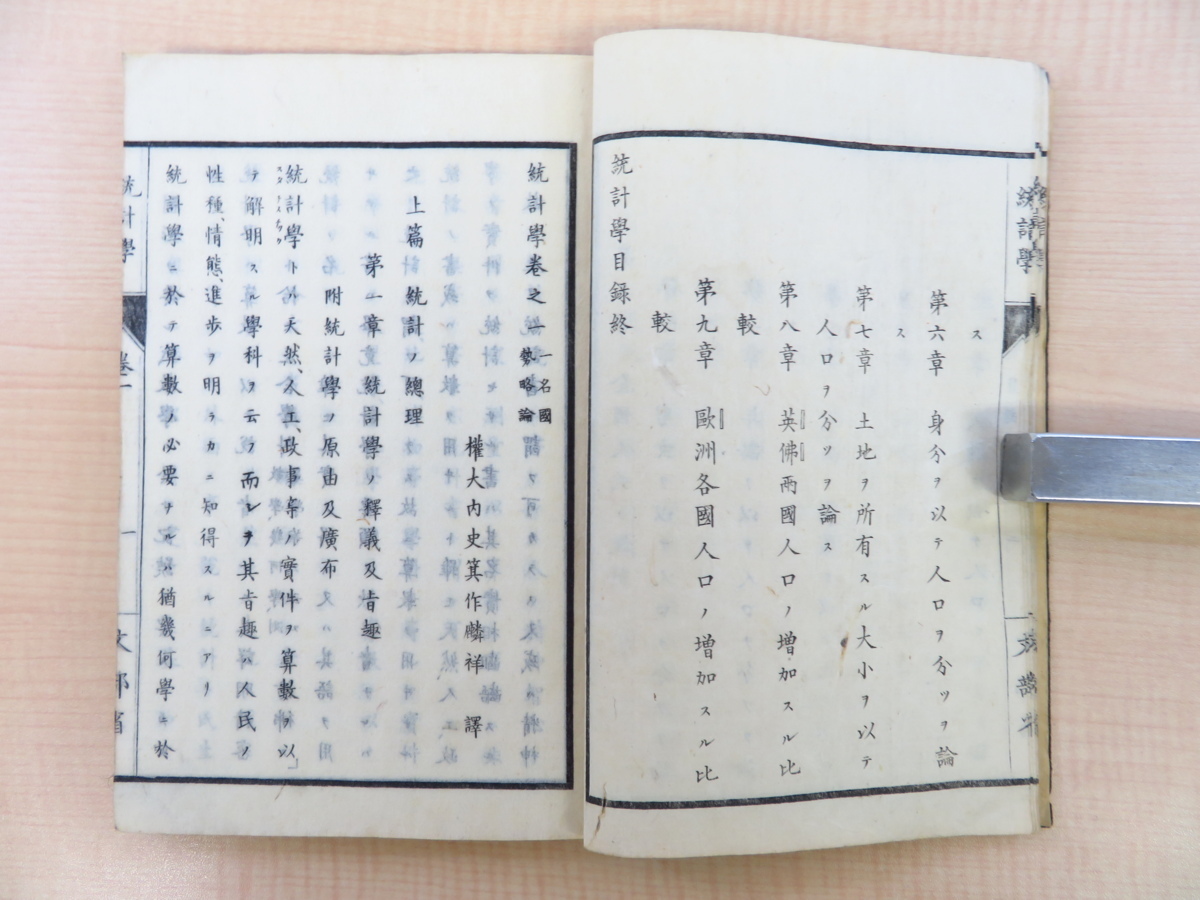 ス
第六章 身分ヲ以テ人口ヲ分ツヲ論
ス
第七章 土地ヲ所有スル大小ヲ以テ
人口ヲ分ツヲ論ス
第八章 英佛兩國人口ノ増加スル比
較
第九章 歐洲各國人口ノ増加スル比
較
統計學目録終
統計學巻之一 一名國
勢略論
權大内史箕作麟祥 譯
上篇 統計ノ總理
第一章 統計學ノ釋義及旨趣
附統計學ノ原由及廣布
統計學トハ天然、人工、政事等ノ實件ヲ算數ヲ以
テ解明スル學科ヲ云フ而シテ其旨趣ハ人民ノ
性種、情態、進歩ヲ明ラカニ知得スルニアリ
統計學ニ於テ算數ノ必要ナルハ猶幾何學ニ於
統計學
巻一
一
文部省